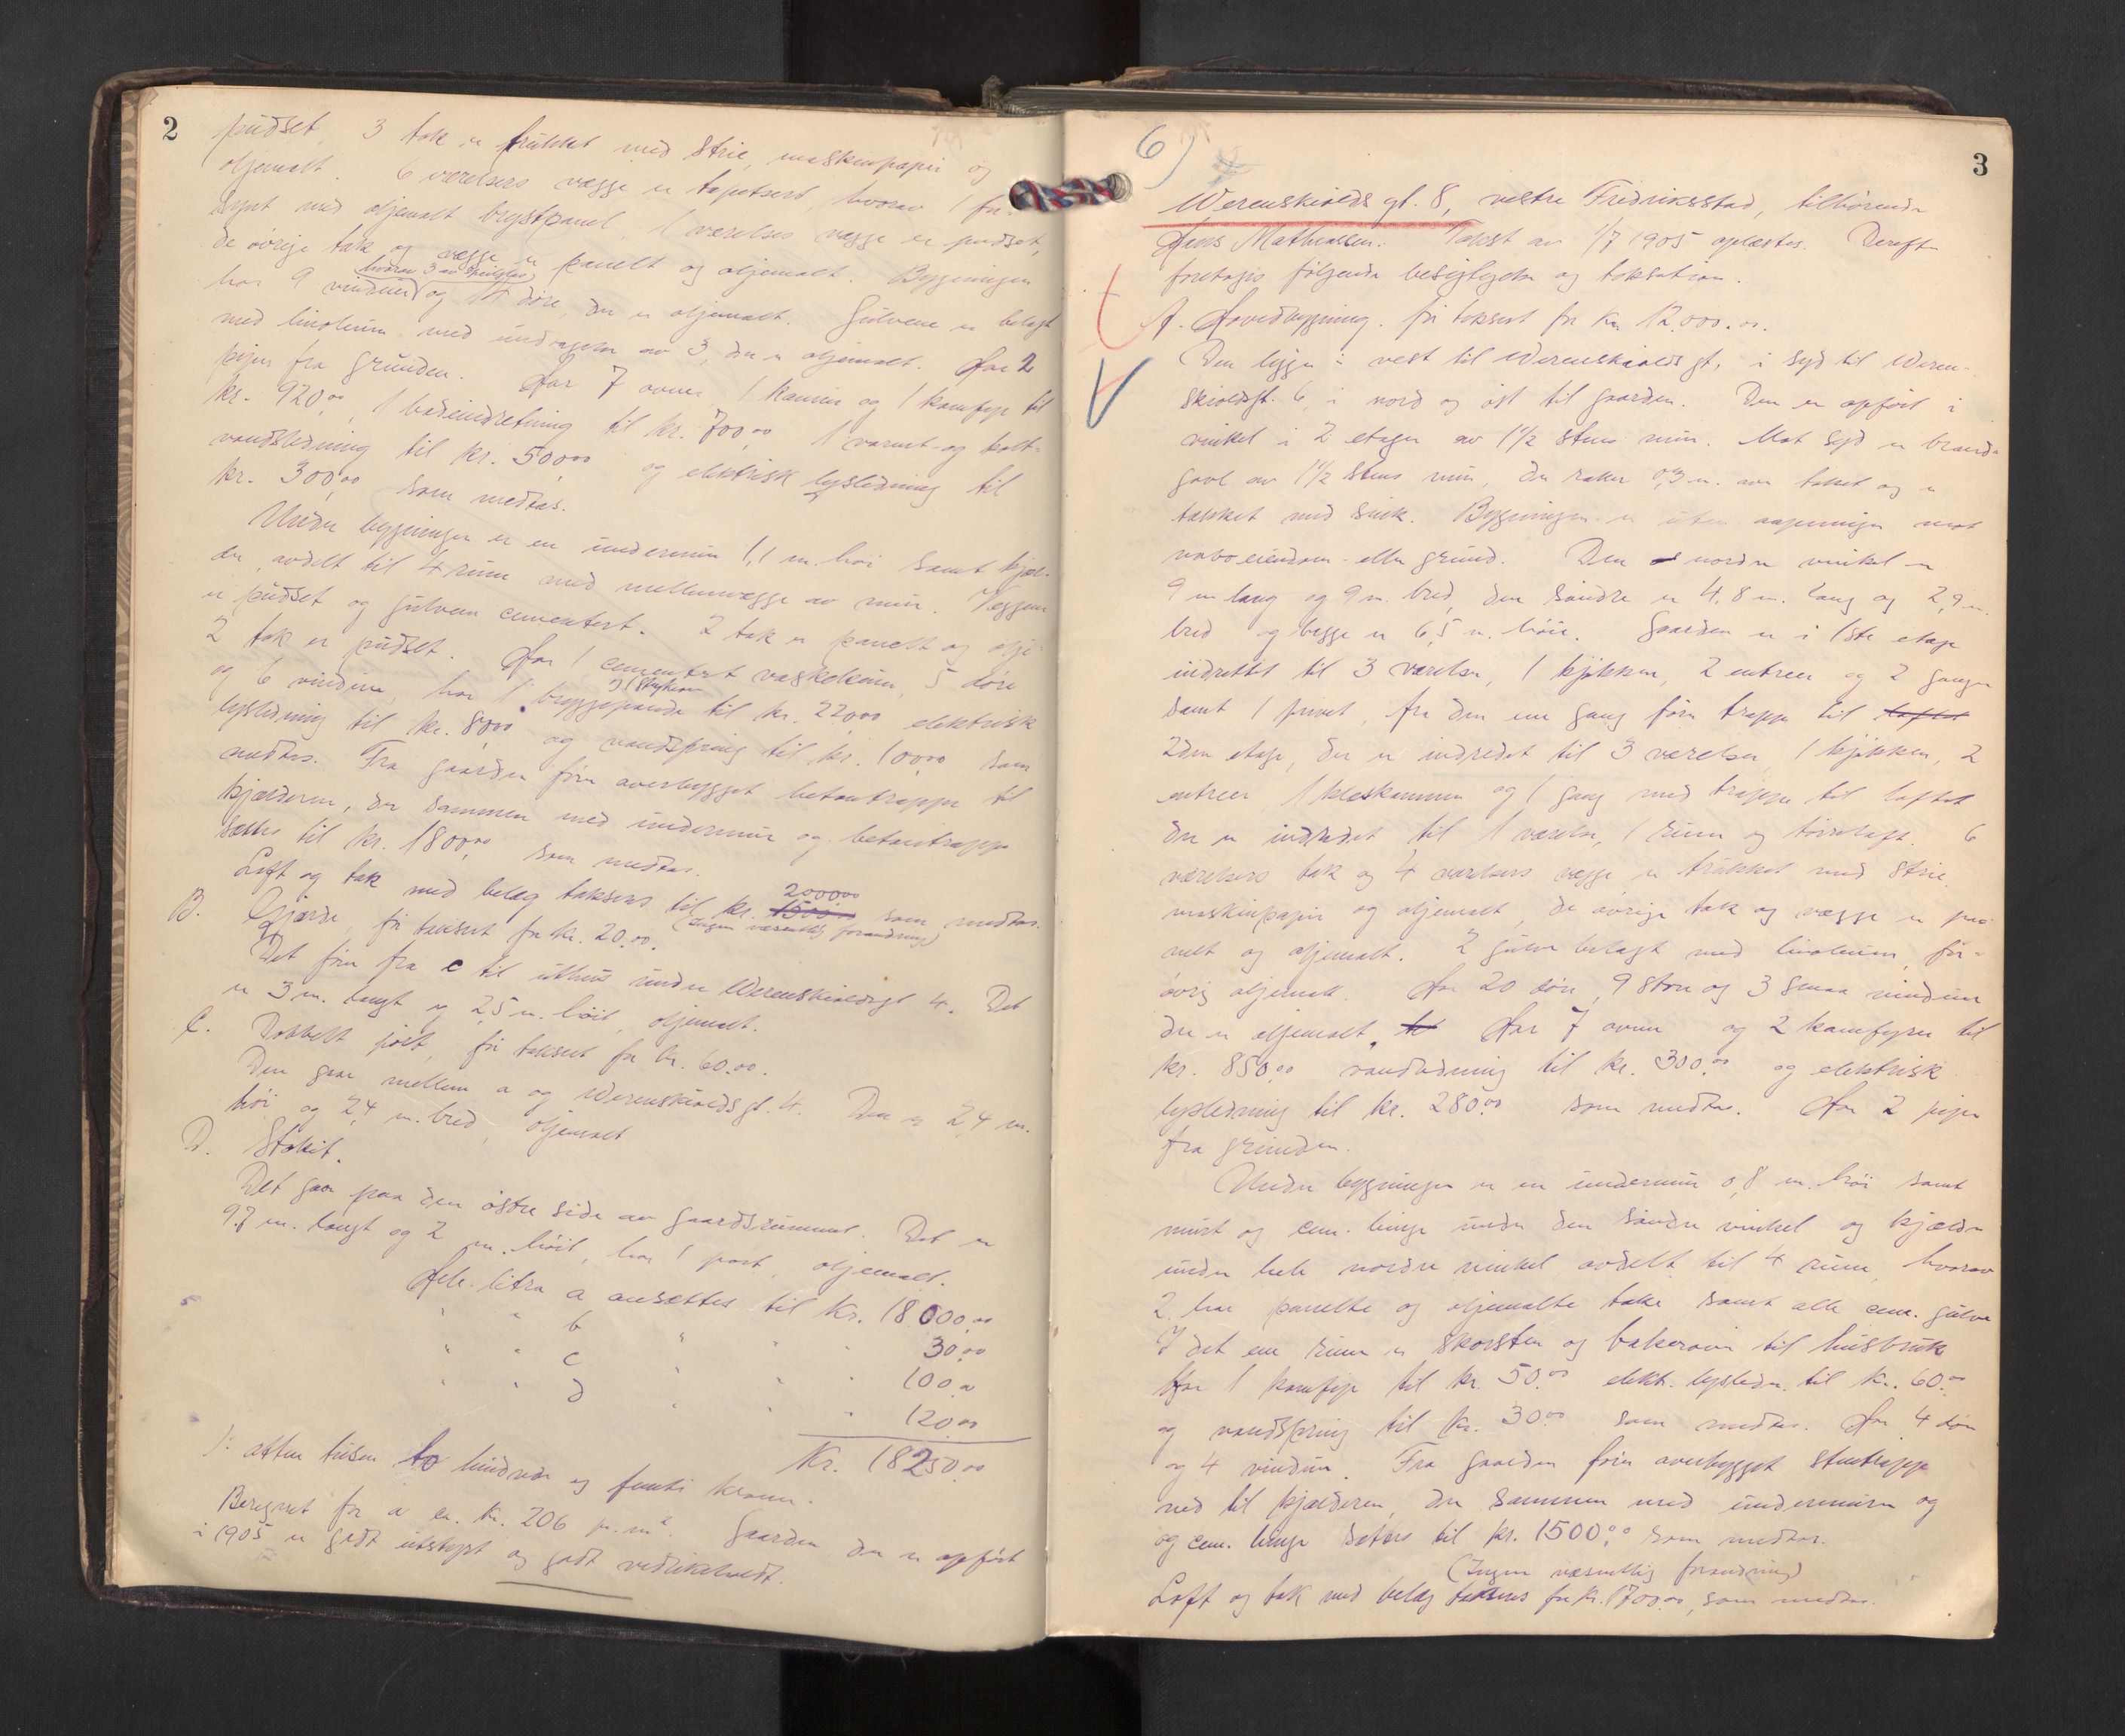 2
pudset. 3 tak er trukket med strie, maskinpapir og
oljemalt. 6 værelsers vægge er tapetsert, hvorav 1 for-
synt med oljemalt brystpanel, 1 værelses vægge er pudset,
de övrige tak og vægge er panelt og oljemalt. Bygningen
hvorav 3 av
har 9 vinduer og 14 döre, der er oljemalt. Gulvene er belagt
med linoleum med undtagelse av 3, der er oljemalt. Har 2
piper fra grunden. Har 7 ovner, 1 kamin og 1 komfyr til
kr. 920.00, 1 badeindretning til kr. 700.00 1 varmt- og kolt-
vandsledning til kr. 500.00 og elektrisk lysledning til
kr. 300.00 som medtas.
Under bygningen er en undermur 1,1 m. höi samt kjæl-
der, avdelt til 4 rum med mellemvægge av mur. Væggene
er pudset og gulvene cementert. 2 tak er panelt og olje-
2 tak er pudset. Har 1 cementert vaskekum, 5 döre
og 6 vinduer, har 1 bryggepande til kr. 220.00 elektrisk
lysledning til kr. 80.00 og vandspring til kr. 100.00 som
medtas. Fra gaarden förer overbygget betontrappe til
kjælderen, der sammen med undermur og betontrappe
sættes til kr. 1800.00 som medtas.
Loft og tak med belæg takseres til kr. 1500.00 2000.00 som medtas.
(Ingen væsentlig forandring)
B. Gjærde, för taksert for kr. 20.00.
Det förer fra c til uthus under Werenskioldsgt 4. Det
er 3 m. langt og 2,5 m. höit, oljemalt.
C. Dobbelt port, för taksert for kr. 60.00.
Den gaar mellem a og Werenskioldsgt. 4. Den er 2,4 m.
höi og 2,4 m. bred, oljemalt
D. Stakit.
Det gaar paa den östre side av gaardsrummet. Det er
9.7 m. langt og 2 m. höit, har 1 port, oljemalt.
Hele litra a ansættes til kr. 18000.00
" " b " " " 30.00
" " c " " " 100.00
" " d " " " 120.00
Kr. 18250.00
): atten tusen to hundrede og femti kroner.
Beregnet for a er kr. 206 pr. m². Gaarden, der er opfört
i 1905 er godt utstyrt og godt vedlikeholdt.
3
6)
Werenskiolds gt. 8, vestre Fredriksstad, tilhörende
Hans Mathiassen. Takst av 1/7 1905 oplæstes. Derefter
foretoges fölgende besigtigelse og taksation.
A. Hovedbygning. för taksert for Kr 12.000.00.
Den ligger i vest til Werenskioldsgt, i syd til Weren-
skioldsgt. 6, i nord og öst til gaarden. Den er opfört i
vinkel i 2 etager av 1½ stens mur. Mot syd er brand-
gavl av 1½ stens mur, der raker 0,3 m. over taket og er
tækket med sink. Bygningen er uten aapninger mot
naboeiendom eller grund. Den nordre vinkel er
9 m lang og 9 m. bred, den söndre er 4,8 m. lang og 2,9 m.
bred og begge er 6,5 m. höie. Gaarden er i 1ste etage
indrettet til 3 værelser, 1 kjökken, 2 entreer og 2 ganger
samt 1 privet, fra den ene gang förer trappe til loftet
2den etage, der er indredet til 3 værelser, 1 kjökken, 2
entreer 1 kleskammer og 1 gang med trappe til loftet
der er indredet til 1 værelse, 1 rum og törreloft. 6
værelsers tak og 4 værelsers vægge er trukket med strie,
maskinpapir og oljemalt, de övrige tak og vægge er pa-
nelt og oljemalt. 2 gulve belagt med linoleum, for-
övrig oljemalt. Har 20 döre, 9 store og 3 smaa vinduer
der er oljemalt. Har 7 ovner og 2 komfyrer til
kr. 850.00 vandledning til kr. 300.00 og elektrisk
lysledning til kr. 280.00 som medtas. Har 2 piper
fra grunden.
Under bygningen er en undermur 0,8 m. höi samt
murt og cem. binge under den söndre vinkel og kjælder
under hele nordre vinkel avdelt til 4 rum, hvorav
2 har panelte og oljemalte take samt alle cem. gulve
I det ene rum er skorsten og bakerovn til husbruk
Har 1 komfyr til kr. 50.00 elekt. lysledn. til kr. 60.00
og vandspring til kr. 30.00 som medtas. Har 4 döre
og 4 vinduer. Fra gaarden förer overbygget stentrappe
ned til kjælderen, der sammen med undermuren og
og cem. binge settes til kr. 1500.00 som medtas.
(Ingen væsentlig forandring)
Loft og tak med belæg takseres for kr. 1700.00, som medtas.